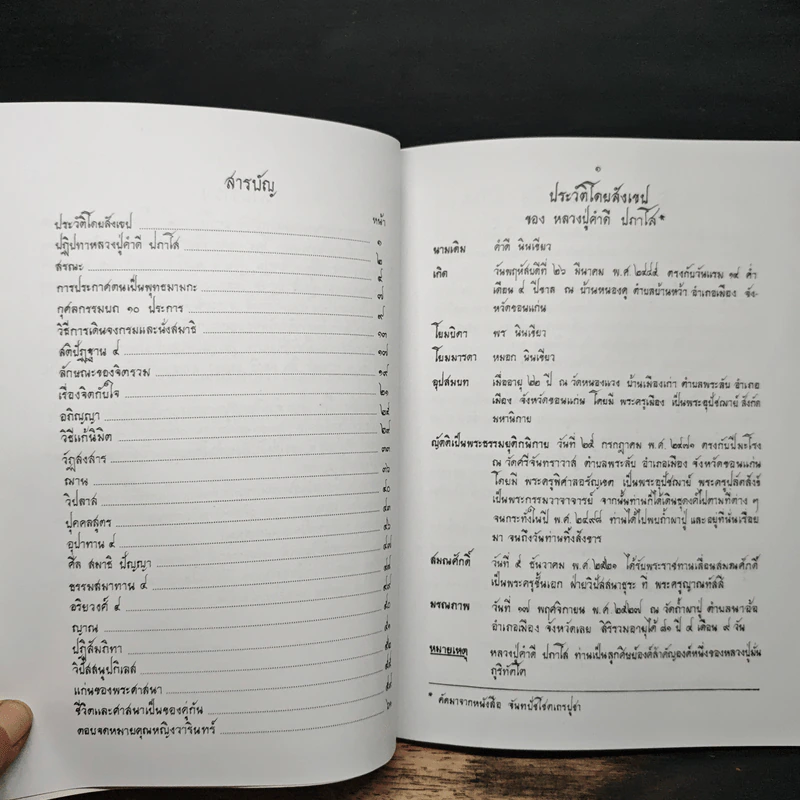 สารบัญ
หน้า
ประวัติโดยสังเขป ๑
ปฏิปทาหลวงปู่คำดี ปภาโส ๒
สรณะ ๔
การประกาศตนเป็นพุทธมามกะ ๗
กุศลกรรมบถ ๑๐ ประการ ๙
วิธีการเดินจงกรมและนั่งสมาธิ ๑๓
สติปัฏฐาน ๔ ๑๗
ลักษณะของจิตรวม ๑๙
เรื่องจิตกับใจ ๒๑
อภิญญา ๒๕
วิธีแก้นิมิต ๒๙
วัฏสงสาร ๓๓
ฌาน ๓๖
วิปลาส ๔๐
ปุคคลสูตร ๔๓
อุปาทาน ๔ ๔๖
ศีล สมาธิ ปัญญา ๔๗
ธรรมสมาทาน ๔
อริยวงศ์ ๔
ญาณ
ปฏิสัมภิทา
วิปัสสนูปกิเลส
แก่นของพระศาสนา
ชีวิตและศาสนาเป็นของคู่กัน
ตอบจดหมายคุณหญิงวารินทร์
๑
ประวัติโดยสังเขป
ของ หลวงปู่คำดี ปภาโส*
นามเดิม คำดี นินเขียว
เกิด วันพฤหัสบดีที่ ๒๖ มีนาคม พ.ศ. ๒๔๔๕ ตรงกับวันแรม ๑๔ ค่ำ
เดือน ๔ ปีขาล ณ บ้านหนองคู ตำบลบ้านหว้า อำเภอเมือง จัง-
หวัดขอนแก่น
โยมบิดา พร นินเขียว
โยมมารดา หมอก นินเขียว
อุปสมบท เมื่ออายุ ๒๒ ปี ณ วัดหนองแวง บ้านเมืองเก่า ตำบลพระลับ อำเภอ
เมือง จังหวัดขอนแก่น โดยมี พระครูเมือง เป็นพระอุปัชฌาย์ สังกัด
มหานิกาย
ญัตติเป็นพระธรรมยุติกนิกาย วันที่ ๒๕ กรกฎาคม พ.ศ. ๒๔๗๑ ตรงกับปีมะโรง
ณ วัดศรีจันทราวาส ตำบลพระลับ อำเภอเมือง จังหวัดขอนแก่น
โดยมี พระครูพิศาลอรัญเขต เป็นพระอุปัชฌาย์ พระครูปลัดสังข์
เป็นพระกรรมวาจาจารย์ จากนั้นท่านก็ได้เดินธุดงค์ไปตามที่ต่าง ๆ
จนกระทั่งในปี พ.ศ. ๒๔๙๘ ท่านได้ไปพบถ้ำผาปู่ และอยู่ที่นั่นเรื่อย
มา จนถึงวันท่านทิ้งสังขาร
สมณศักดิ์ วันที่ ๕ ธันวาคม พ.ศ. ๒๕๒๑ ได้รับพระราชทานเลื่อนสมณศักดิ์
เป็นพระครูชั้นเอก ฝ่ายวิปัสสนาธุระ ที่ พระครูญาณทัสสี
มรณภาพ วันที่ ๑๗ พฤศจิกายน พ.ศ. ๒๕๒๗ ณ วัดถ้ำผาปู่ ตำบลนาอ้อ
อำเภอเมือง จังหวัดเลย สิริรวมอายุได้ ๘๑ ปี ๘ เดือน ๙ วัน
หมายเหตุ หลวงปู่คำดี ปภาโส ท่านเป็นลูกศิษย์องค์สำคัญองค์หนึ่งของหลวงปู่มั่น
ภูริทัตโต
* คัดมาจากหนังสือ จันทปัชโชตเถรปูชา